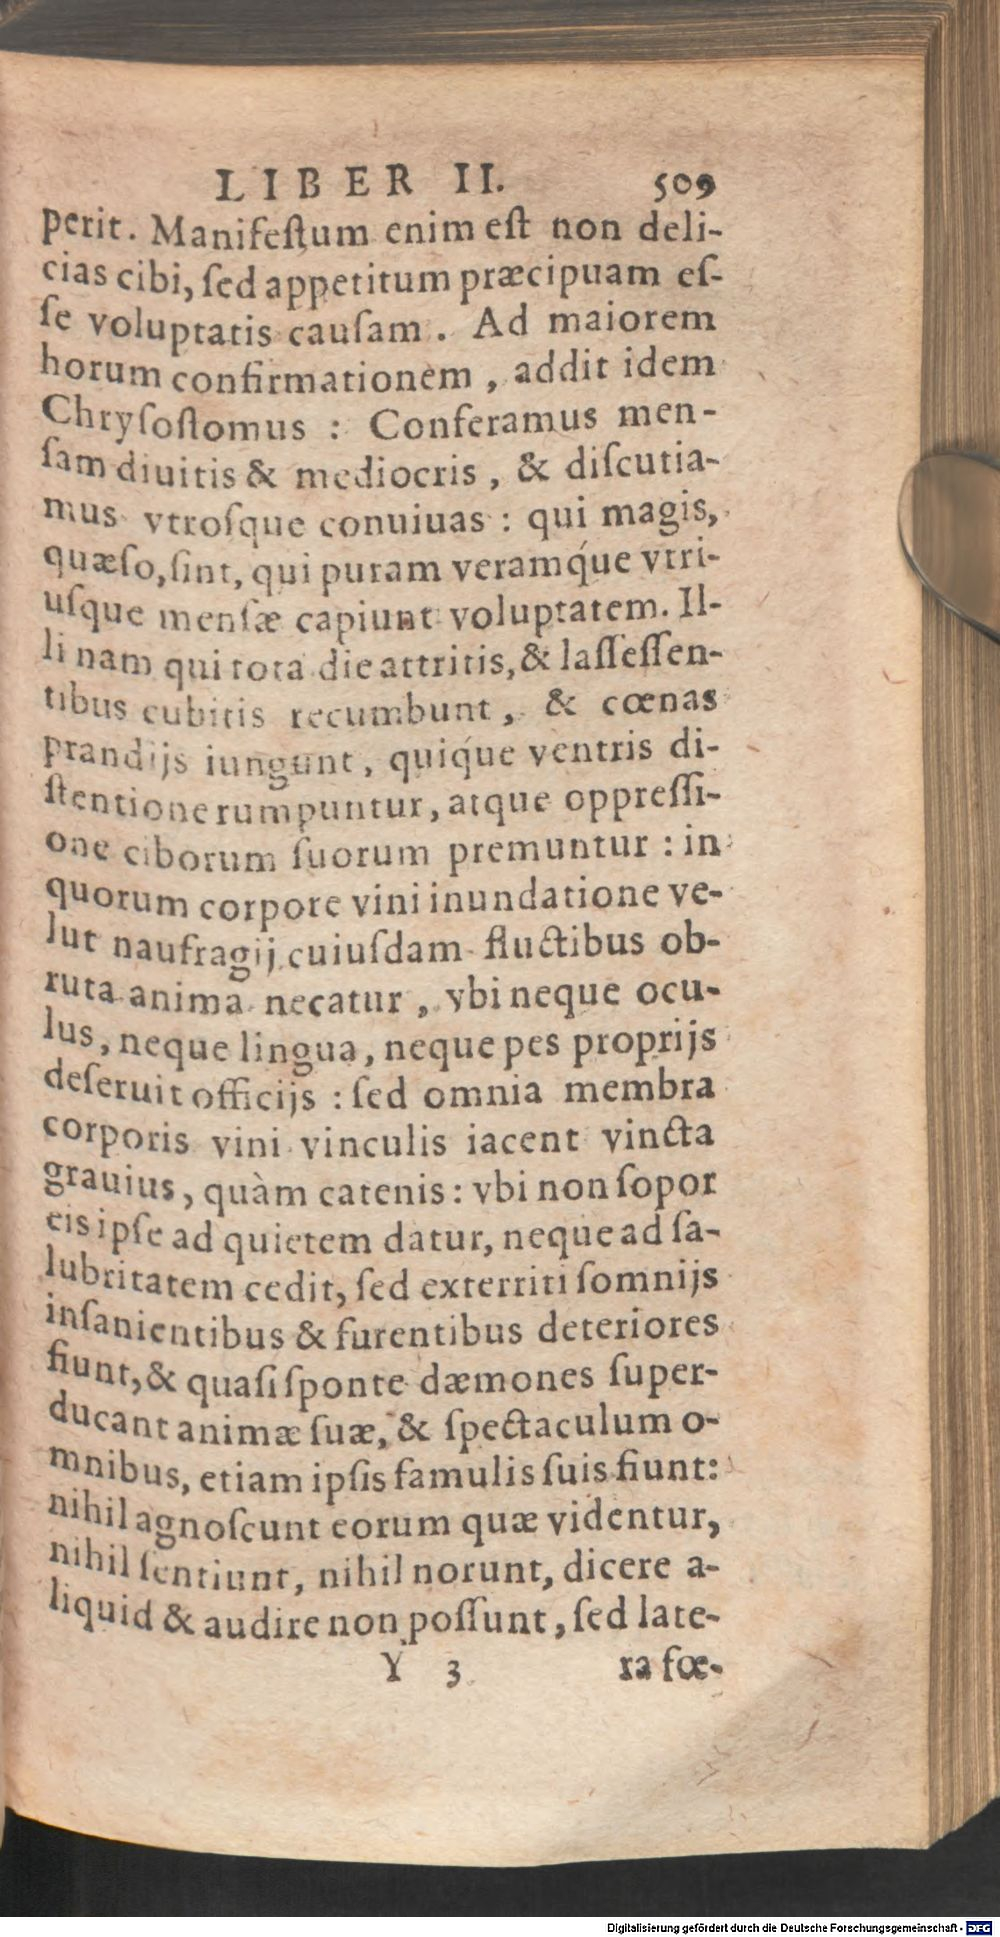 LIBER II. 509
perit. Manifeſtum enim eſt non deli-
cias cibi, ſed appetitum præcipuam eſ-
ſe voluptatis cauſam. Ad maiorem
horum confirmationem, addit idem
Chryſoſtomus : Conferamus men-
ſam diuitis & mediocris, & diſcutia-
mus vtroſque conuiuas : qui magis,
quæſo, ſint, qui puram veramq́ue vtri-
uſque menſæ capiunt voluptatem. Il-
li nam qui tota die attritis, & laſſeſſen-
tibus cubitis recumbunt, & cœnas
prandijs iungunt, quiq́ue ventris di-
ſtentione rumpuntur, atque oppreſſi-
one ciborum ſuorum premuntur : in
quorum corpore vini inundatione ve-
lut naufragij cuiuſdam fluctibus ob-
ruta anima necatur, vbi neque ocu-
lus, neque lingua, neque pes proprijs
deſeruit officijs : ſed omnia membra
corporis vini vinculis iacent vincta
grauius, quàm catenis : vbi non ſopor
eis ipſe ad quietem datur, neque ad ſa-
lubritatem cedit, ſed exterriti ſomnijs
inſanientibus & furentibus deteriores
fiunt, & quaſi ſponte dæmones ſuper-
ducant animæ ſuæ, & ſpectaculum o-
mnibus, etiam ipſis famulis ſuis fiunt:
nihil agnoſcunt eorum quæ videntur,
nihil ſentiunt, nihil norunt, dicere a-
liquid & audire non poſſunt, ſed late-
Y 3 ra fœ-
Digitalisierung gefördert durch die Deutsche Forschungsgemeinschaft - DFG